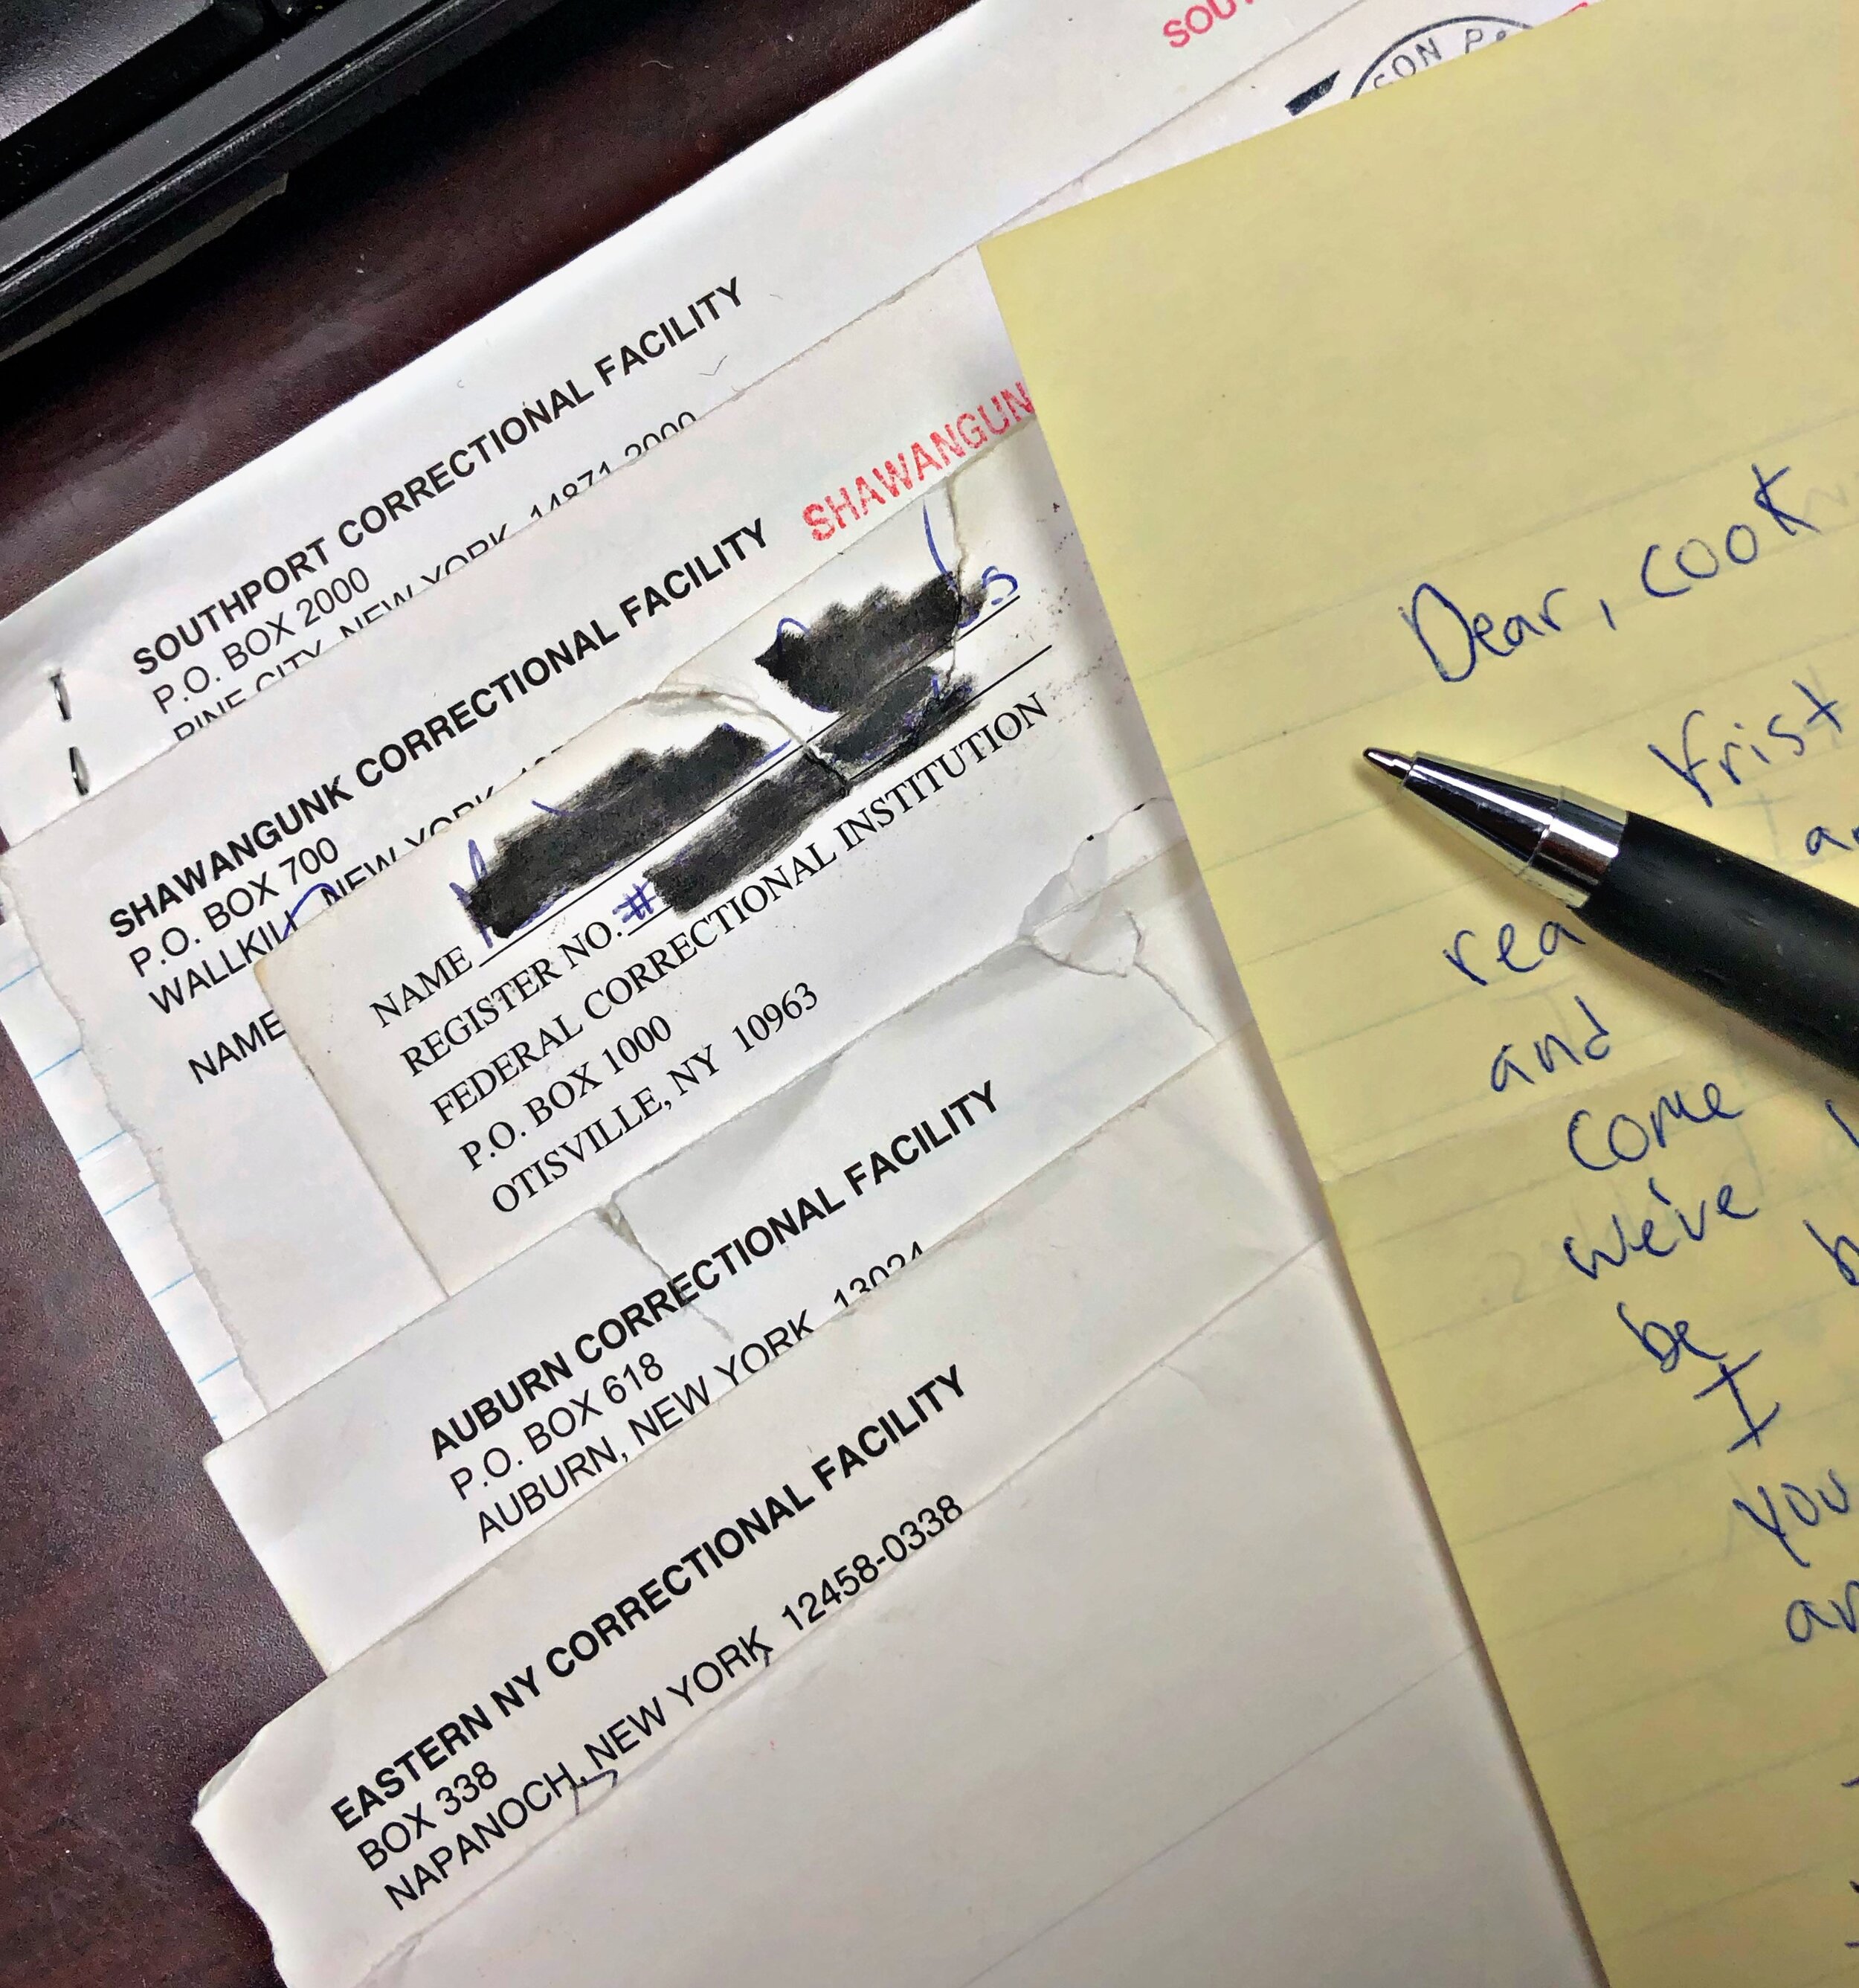 SOUT
SON P
SOUTHPORT CORRECTIONAL FACILITY
P.O. BOX 2000
PINE CITY, NEW YORK 14871-2000
SHAWANGUNK CORRECTIONAL FACILITY
SHAWANGUN
P.O. BOX 700
WALLKILL, NEW YORK
NAME
NAME
REGISTER NO. #
FEDERAL CORRECTIONAL INSTITUTION
P.O. BOX 1000
OTISVILLE, NY 10963
AUBURN CORRECTIONAL FACILITY
P.O. BOX 618
AUBURN, NEW YORK 13024
EASTERN NY CORRECTIONAL FACILITY
BOX 338
NAPANOCH, NEW YORK 12458-0338
Dear, cook
Frist
rea
and
come
we've
be
I
you